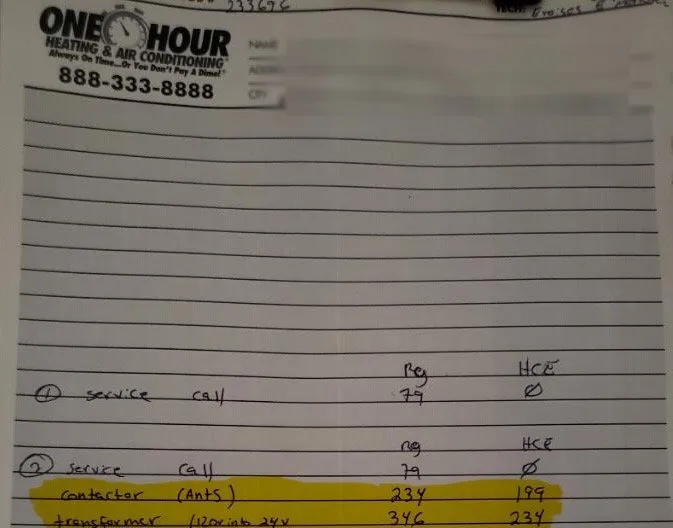 233696
TECH:
ONE HOUR
HEATING & AIR CONDITIONING
Always On Time...Or You Don't Pay A Dime!
888-333-8888
NAME
ADDRESS
CITY
Reg HCE
① service call 79 Ø
Reg HCE
② service call 79 Ø
contactor (Ants) 234 199
transformer /120v into 24v 346 234